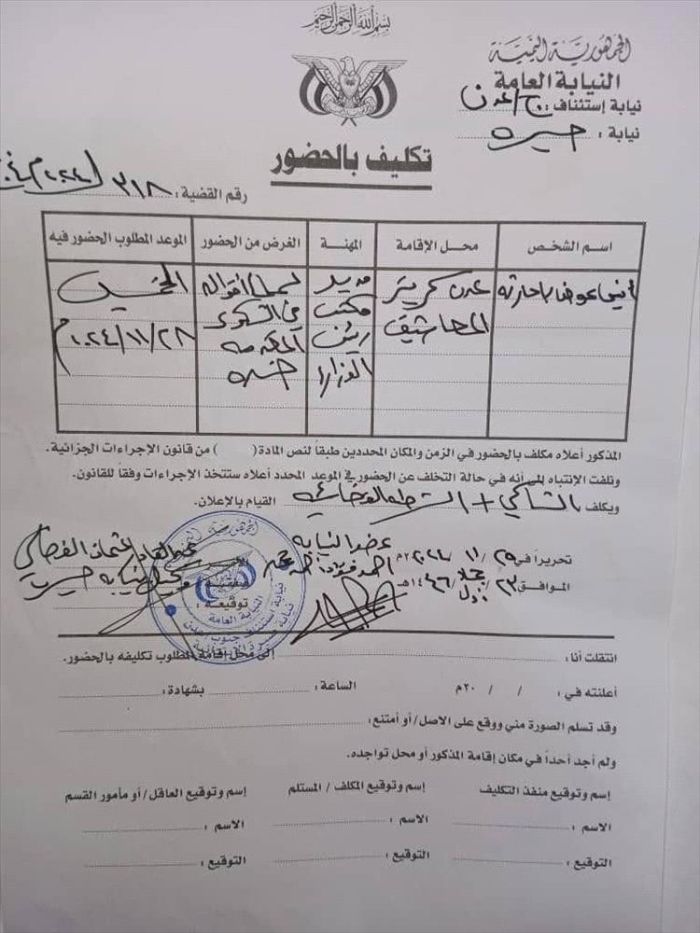 بسم الله الرحمن الرحيم
الجمهورية اليمنية
النيابة العامة
نيابة إستئناف : ج/عدن
نيابة : صيره
تكليف بالحضور
رقم القضية : ٣١٨ / ٢٠٢٤م
اسم الشخص
محل الإقامة
المهنة
الغرض من الحضور
الموعد المطلوب الحضور فيه
أنيس عوض باحارثه
عدن كريتر
المعاشيق
مدير
مكتب
رئيس
الوزراء
لسماع أقواله
في الشكوى
المقدمة
ضده
الخميس
٢٠٢٤/١١/٢٨م
المذكور أعلاه مكلف بالحضور في الزمن والمكان المحددين طبقاً لنص المادة( ) من قانون الإجراءات الجزائية.
ونلفت الإنتباه إلى أنه في حالة التخلف عن الحضور في الموعد المحدد أعلاه ستتخذ الإجراءات وفقاً للقانون.
ويكلف الشاكي + الشرطه القضائيه القيام بالإعلان.
تحريراً في ٢٥ / ١١ / ٢٠٢٤م
الموافق ٢٣ / جماد أول / ١٤٤٦هـ
عضو النيابة
احمد
وكيل نيابه صيره
توقيعه :
الجمهورية اليمنية
النيابة العامة
نيابة استئناف جنوب عدن
انتقلت أنا : إلى محل إقامة المطلوب تكليفه بالحضور.
أعلنته في : / / ٢٠م الساعة : بشهادة :
وقد تسلم الصورة مني ووقع على الاصل/ أو أمتنع :
ولم أجد أحداً في مكان إقامة المذكور أو محل تواجده.
إسم وتوقيع منفذ التكليف
إسم وتوقيع المكلف / المستلم
إسم وتوقيع العاقل/ أو مأمور القسم
الاسم :
الاسم :
الاسم :
التوقيع :
التوقيع :
التوقيع :